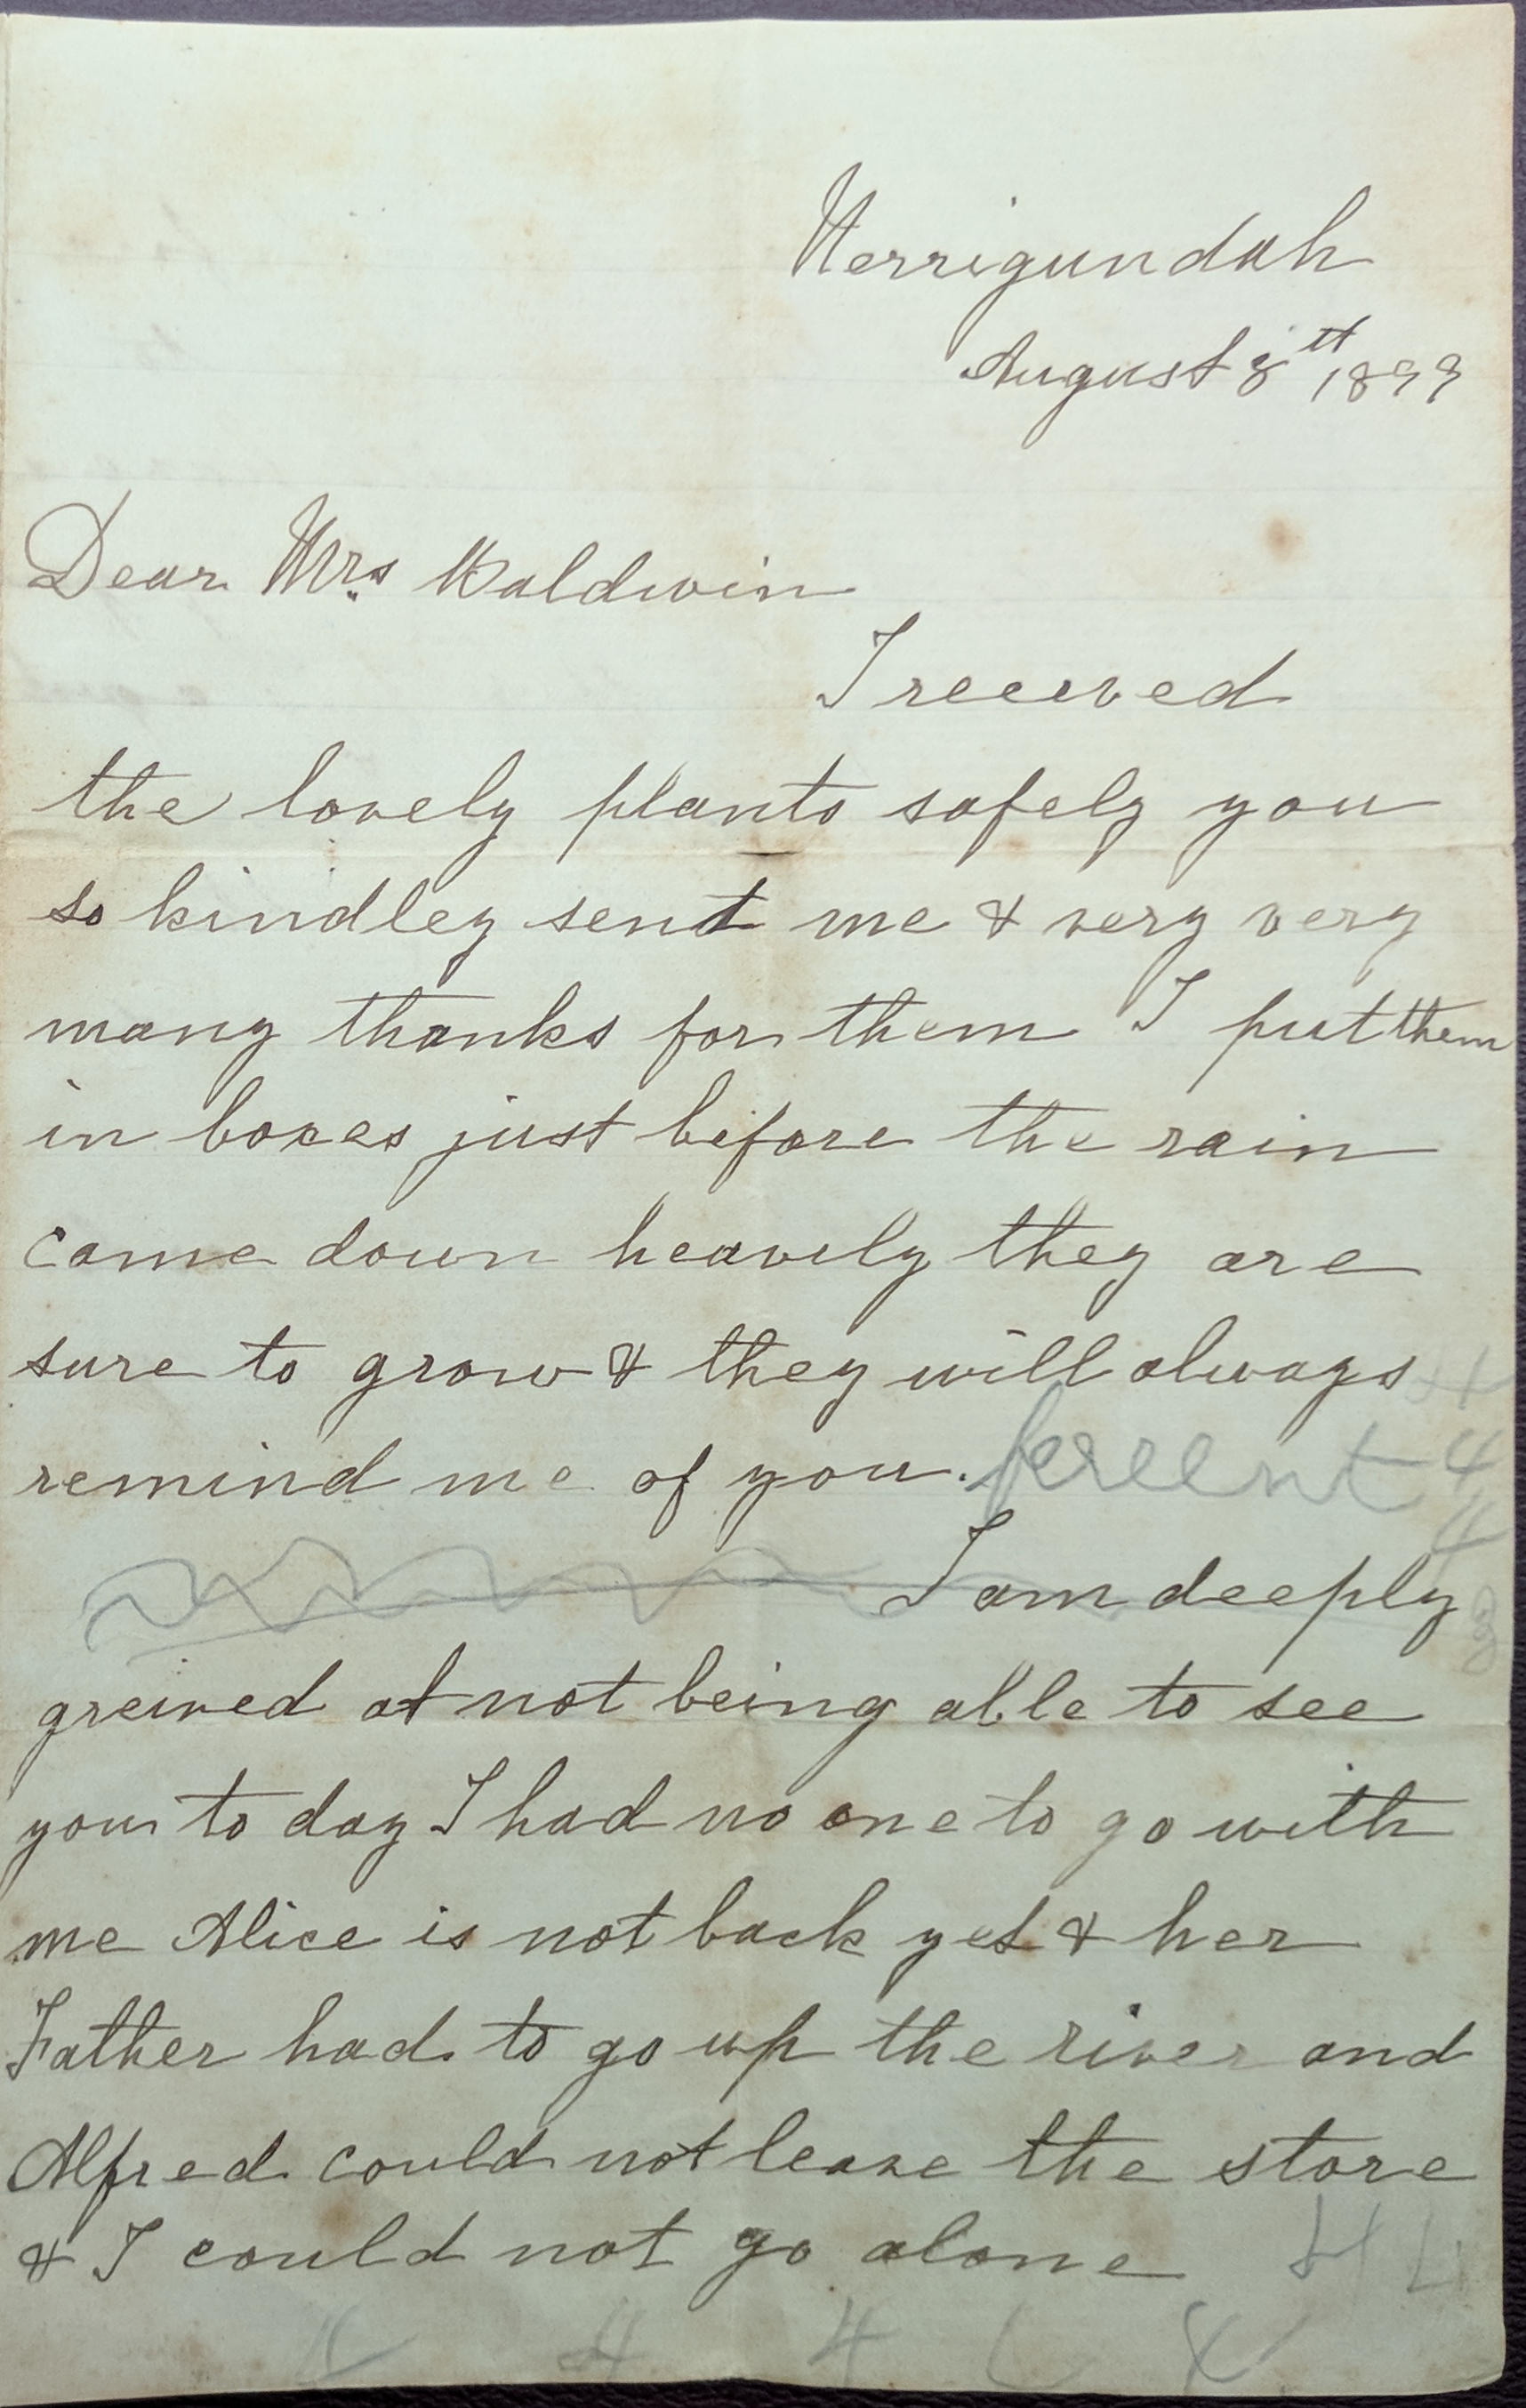 Nerrigundah
August 8th 1899
Dear Mrs Baldwin
I received
the lovely plants safely you
so kindley sent me & very very
many thanks for them I put them
in boxes just before the rain
came down heavily they are
sure to grow & they will always
remind me of you. 4
4
I am deeply
3
greived at not being able to see
you to day I had no one to go with
me Alice is not back yet & her
Father had to go up the river and
Alfred could not leave the store
& I could not go alone
4 4